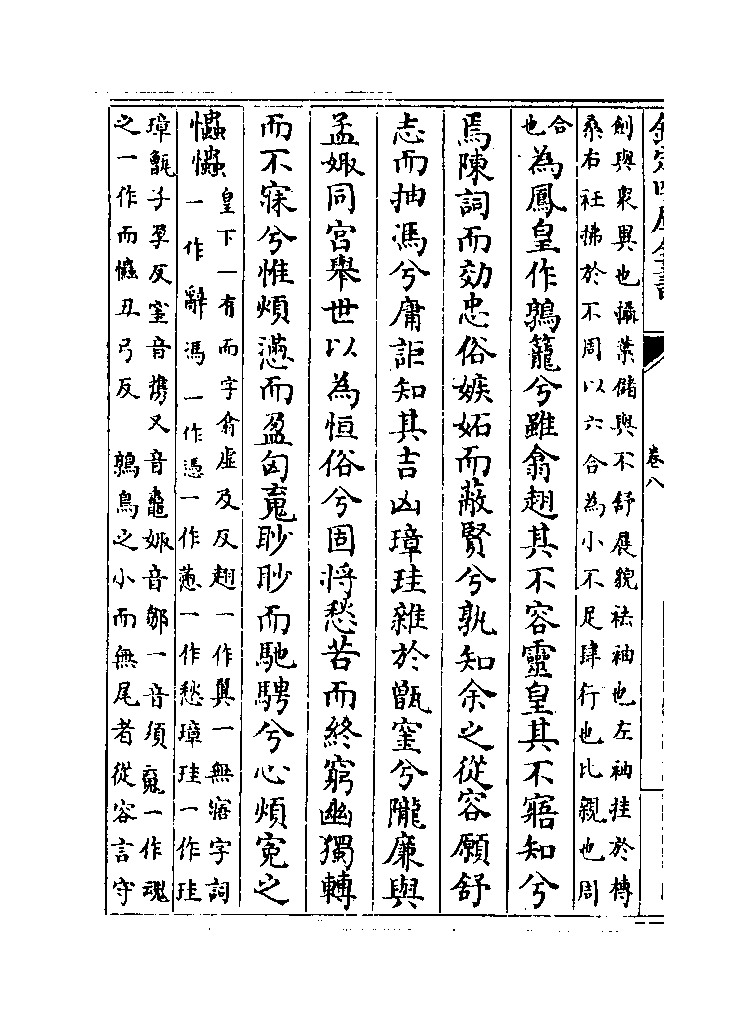 欽定四庫全書
卷八
劍與衆異也攝葉儲與不舒展貌袪袖也左袖挂於榑
桑右衽拂於不周以六合為小不足肆行也比親也周
合也為鳳皇作鶉籠兮雖翕翅其不容靈皇其不寤知兮
焉陳詞而効忠俗嫉妬而蔽賢兮孰知余之從容願舒
志而抽馮兮庸詎知其吉凶璋珪雜於甑窐兮隴廉與
孟娵同宫舉世以為恒俗兮固將愁苦而終窮幽獨轉
而不寐兮惟煩懣而盈匈䰟眇眇而馳騁兮心煩寃之
𢥞𢥞皇下一有而字翕虚及反翅一作翼一無寤字詞
一作辭馮一作憑一作懣一作愁璋珪一作珪
璋甑子孕反窐音攜又音鼃娵音鄒一音須䰟一作魂
之一作而𢥞丑弓反 鶉鳥之小而無尾者從容言守